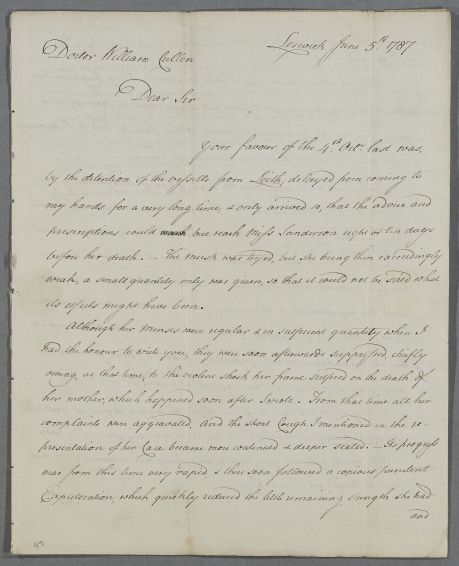 Lerwick June 5th 1787
Doctor William Cullen
Dear Sir
Your favour of the 4th Octr last was,
by the detention of the vessells from Leith, delayed from coming to
my hands for a very long time, & only arrived so, that the advice and
prescriptions could but reach Miss Sanderson eight or ten days
before her death. — The musk was tryed, but she being then exceedingly
weak, a small quantity only was given, so that it could not be seen what
its effects might have been.
Although her Menses were regular & in sufficient quantity when I
had the honour to write you, they were soon afterwards suppressed, chiefly
owing, at that time, to the violent shock her frame suffered on the death of
her mother, which happened soon after I wrote. From that time all her
complaints were aggravated, and the short Cough I mentioned in the re-
presentation of her Case became more continued & deeper seated. — Its progress
was from this time very rapid & there soon followed a copious purulent
Expectoration, which quickly reduced the little remaining strength she had
and